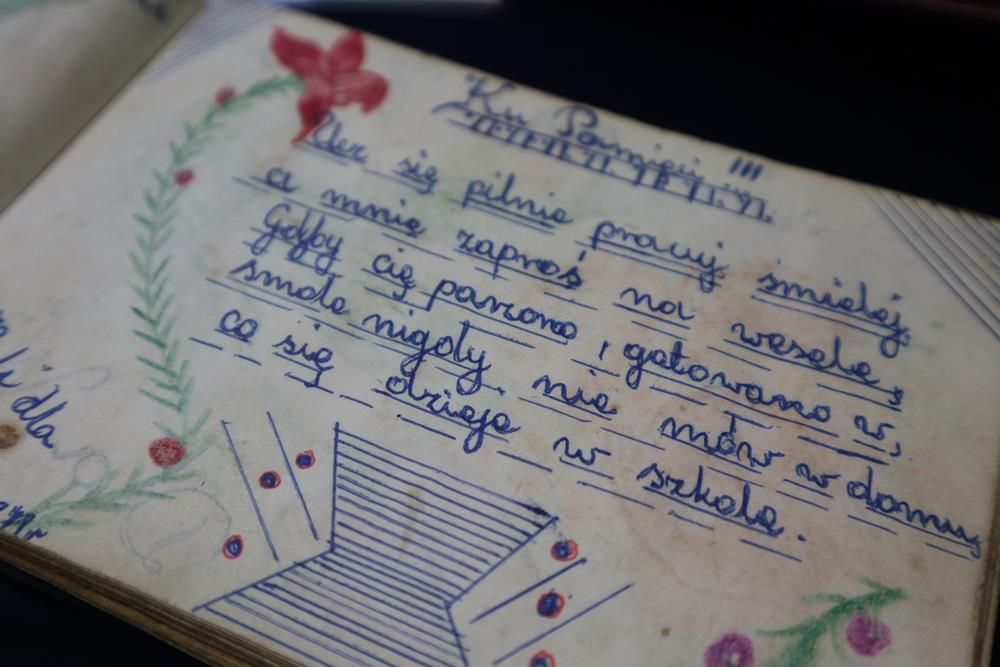 Ku Pamięci !!!
Ucz się pilnie pracuj śmielej
a mnie zaproś na wesele,
Gdyby cię parzono i gotowano w,
smole nigdy nie mów w domu
co się dzieje w szkole.
dla